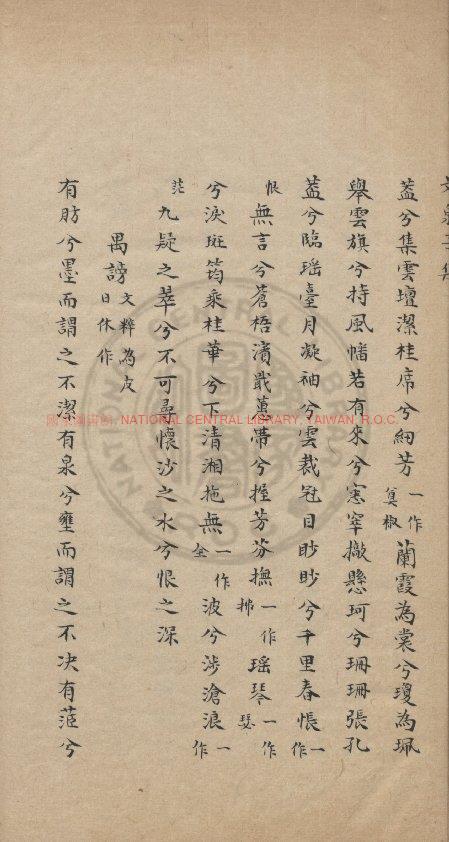 蓋兮集雲壇潔桂席兮細芳一作奠椒蘭霞為裳兮瓊為珮
舉雲旗兮持風幡若有來兮窸窣撤懸珂兮珊珊張孔
蓋兮臨瑶臺月凝袖兮雲裁冠目眇眇兮千里春悵一作
恨無言兮蒼梧濱戢蕙帶兮握芳芬撫一作拂瑶琴一作瑟
兮淚斑筠乘桂華兮下清湘拖無一作全波兮涉滄浪一作
茫九疑之翠兮不可尋懷沙之水兮恨之深
禺謗文粹為皮日休作
有肪兮墨而謂之不潔有泉兮壅而謂之不决有茝兮
國家圖書館, NATIONAL CENTRAL LIBRARY, TAIWAN, R.O.C.